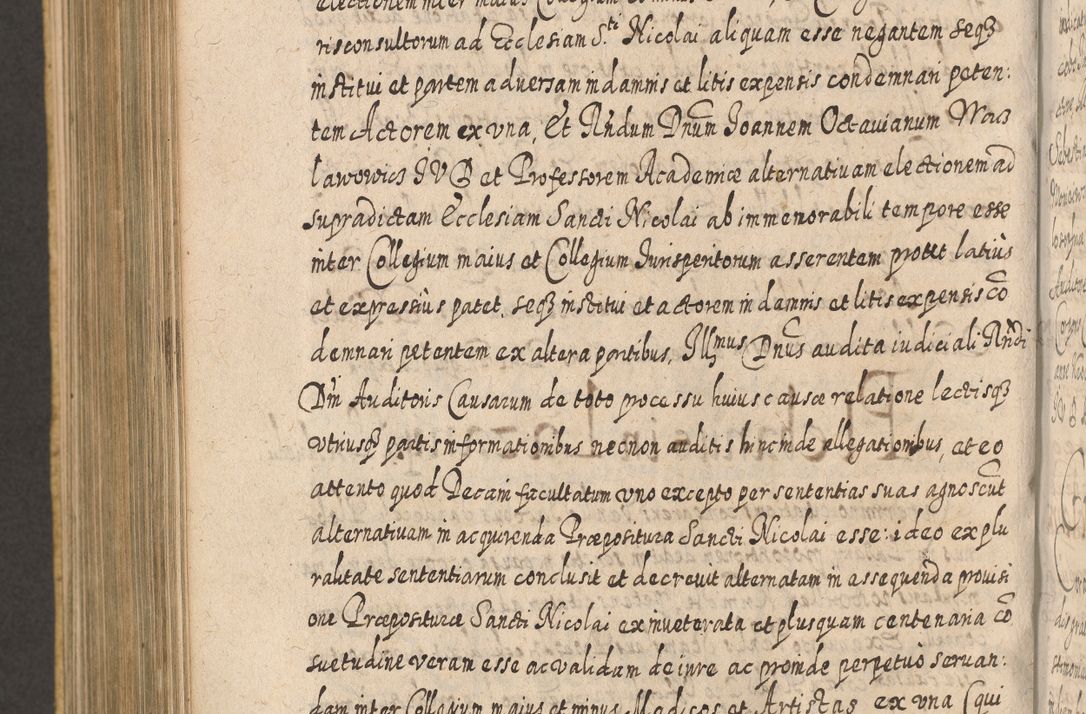 electionem inter maius Collegium et minus
risconsultorum ad Ecclesiam S.ti Nicolai aliquam esse negantem seqꝫ
institui et partem adversam in damnis et litis expensis condemnari peten:
tem Actorem ex vna, Et Rñdum Dnum Joannem Octauianum Wac
lawowicz JVD et Professorem Academiæ alternatiuam electionem ad
supradictam Ecclesiam Sancti Nicolai ab immemorabili tempore esse
inter Collegium maius et Collegium Jurisperitorum asserentem prout latiùs
et expressiùs patet, seqꝫ institui et actorem in damnis et litis expensis cō
demnari petentem ex altera partibus, Illmus Dnus audita iudiciali Rñdi
Dñi Auditoris Causarum de toto processu huius causæ relatione lectisqꝫ
vtriusqꝫ partis informationibus necnon auditis hincinde allegationibus, et eo
attento quod Decani facultatum vno excepto per sententias suas agnoscūt
alternatiuam in acquirenda Præpositura Sancti Nicolai esse: ideo ex plu
ralitate sententiarum conclusit et decreuit alternatam in assequenda prouisi
one Præpositurae Sancti Nicolai ex inueterata et plusquam centenaria cō
suetudine veram esse ac validam de iure ac proinde perpetuò seruan:
dam inter Collegium maius et minus Medicos et Artistas ex vna (qui